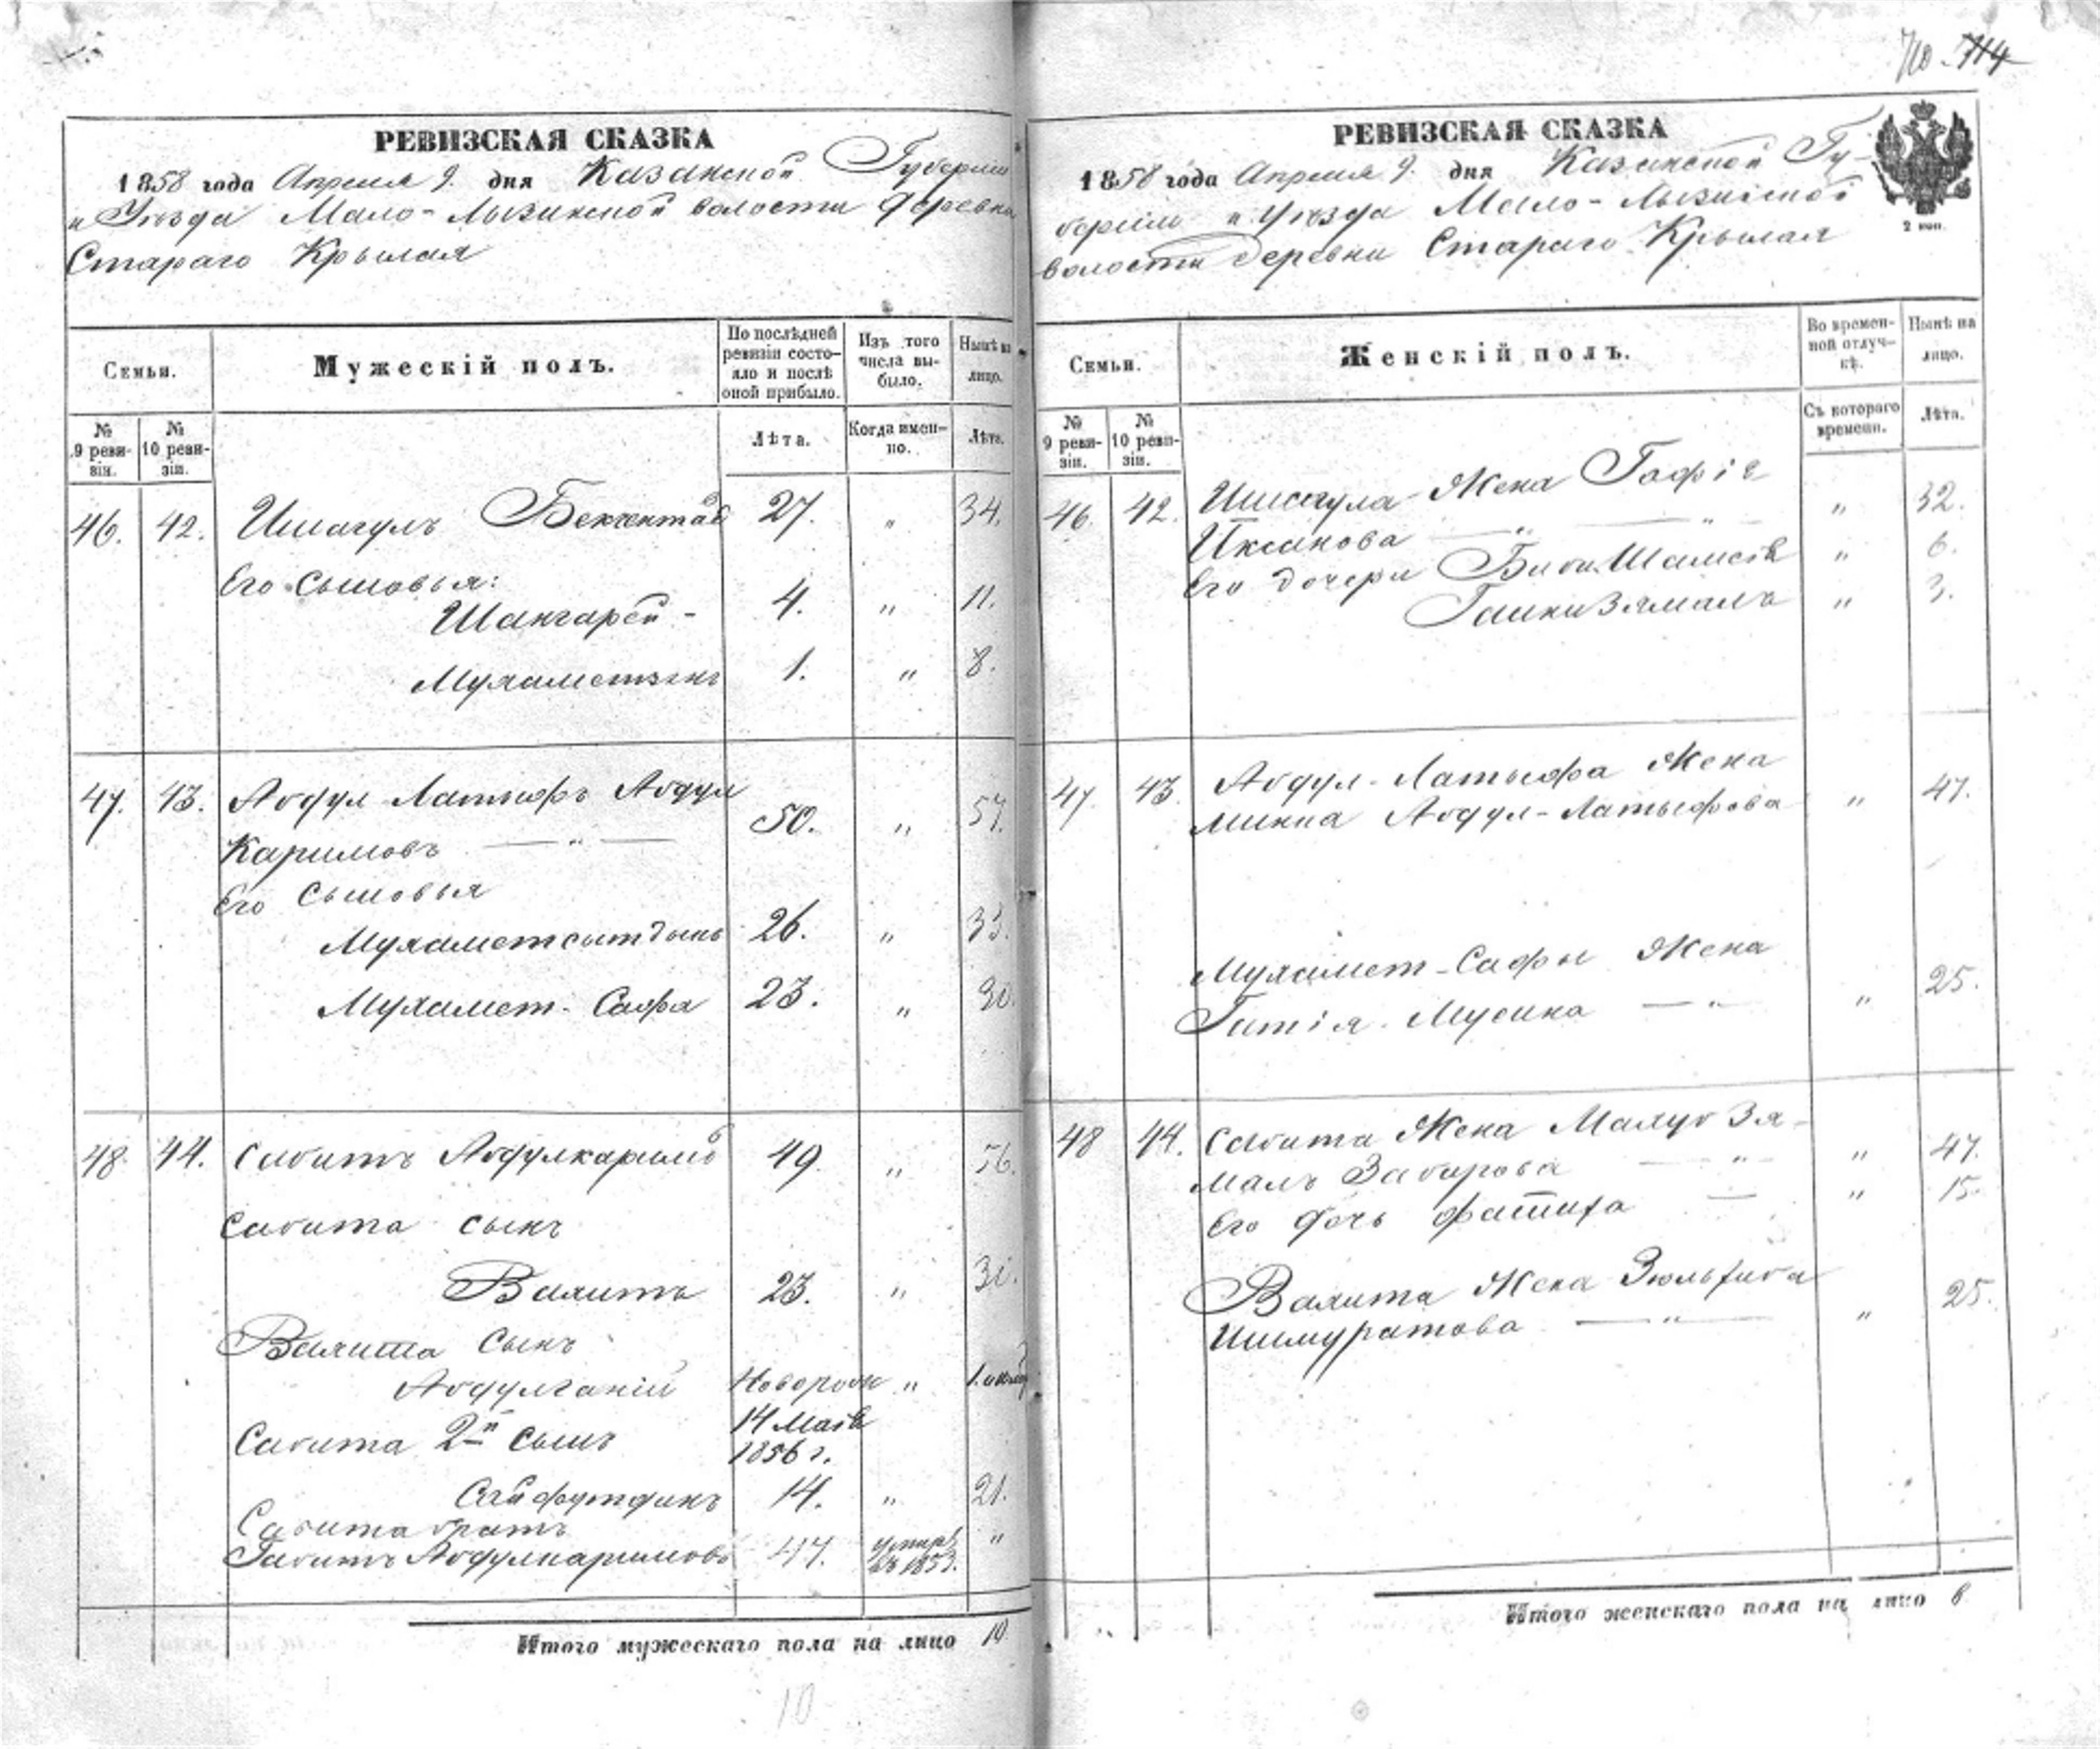 710. 714
РЕВИЗСКАЯ СКАЗКА
1858 года Апреля 9. дня Казанской Губерніи
и Уѣзда Мало-Лызинской волости Деревни
Стараго Крылая
Семьи.
Мужескій полъ.
По послѣдней ревизіи состояло и послѣ оной прибыло.
Изъ того числа выбыло.
Нынѣ на лицо.
№ 9 ревизіи.
№ 10 ревизіи.
Лѣта.
Когда именно.
Лѣта.
46. 42. Ишагулъ 27. " 34.
Его сыновья:
Шангарей - 4. " 11.
Мухаметзянъ 1. " 8.
47. 43. Абдул-Латыфъ Абдул
Каримовъ — " — 50. " 57.
Его сыновья
Мухаметситдынъ 26. " 33.
Мухамет-Сафа 23. " 30.
48. 44. Сабитъ Абдулкаримо 49. " 56.
Сабита сынъ
Валитъ 23. " 30.
Валита сынъ
Абдулганій Новорож "
Сабита 2й сынъ 14 Мая
1856 г.
Сайфутдинъ 14. " 21.
Сабита братъ
Габитъ Абдулкаримовъ 47. умеръ въ 1853. "
Итого мужескаго пола на лицо 10
10
РЕВИЗСКАЯ СКАЗКА
1858 года Апреля 9. дня Казанской Гу-
берніи и Уѣзда Мало-Лызинской
волости деревни Стараго Крылая
2 коп.
Семьи.
Женскій полъ.
Во временной отлучкѣ.
Нынѣ на лицо.
№ 9 ревизіи.
№ 10 ревизіи.
Съ котораго времени.
Лѣта.
46. 42. Ишагула Жена
Иксанова — " — " 32.
Его дочери Биби " 6.
" 3.
47. 43. Абдул-Латыфа Жена
Минна Абдул-Латыфова " 47.
Мухамет-Сафы Жена
Мусина — " " 25.
48 44. Сабита Жена Махуб Зя-
малъ Забирова — " — " 47.
Его Дочь Фатиха — " 15.
Валита Жена
Ишмуратова — " — " 25.
Итого женскаго пола на лицо 8